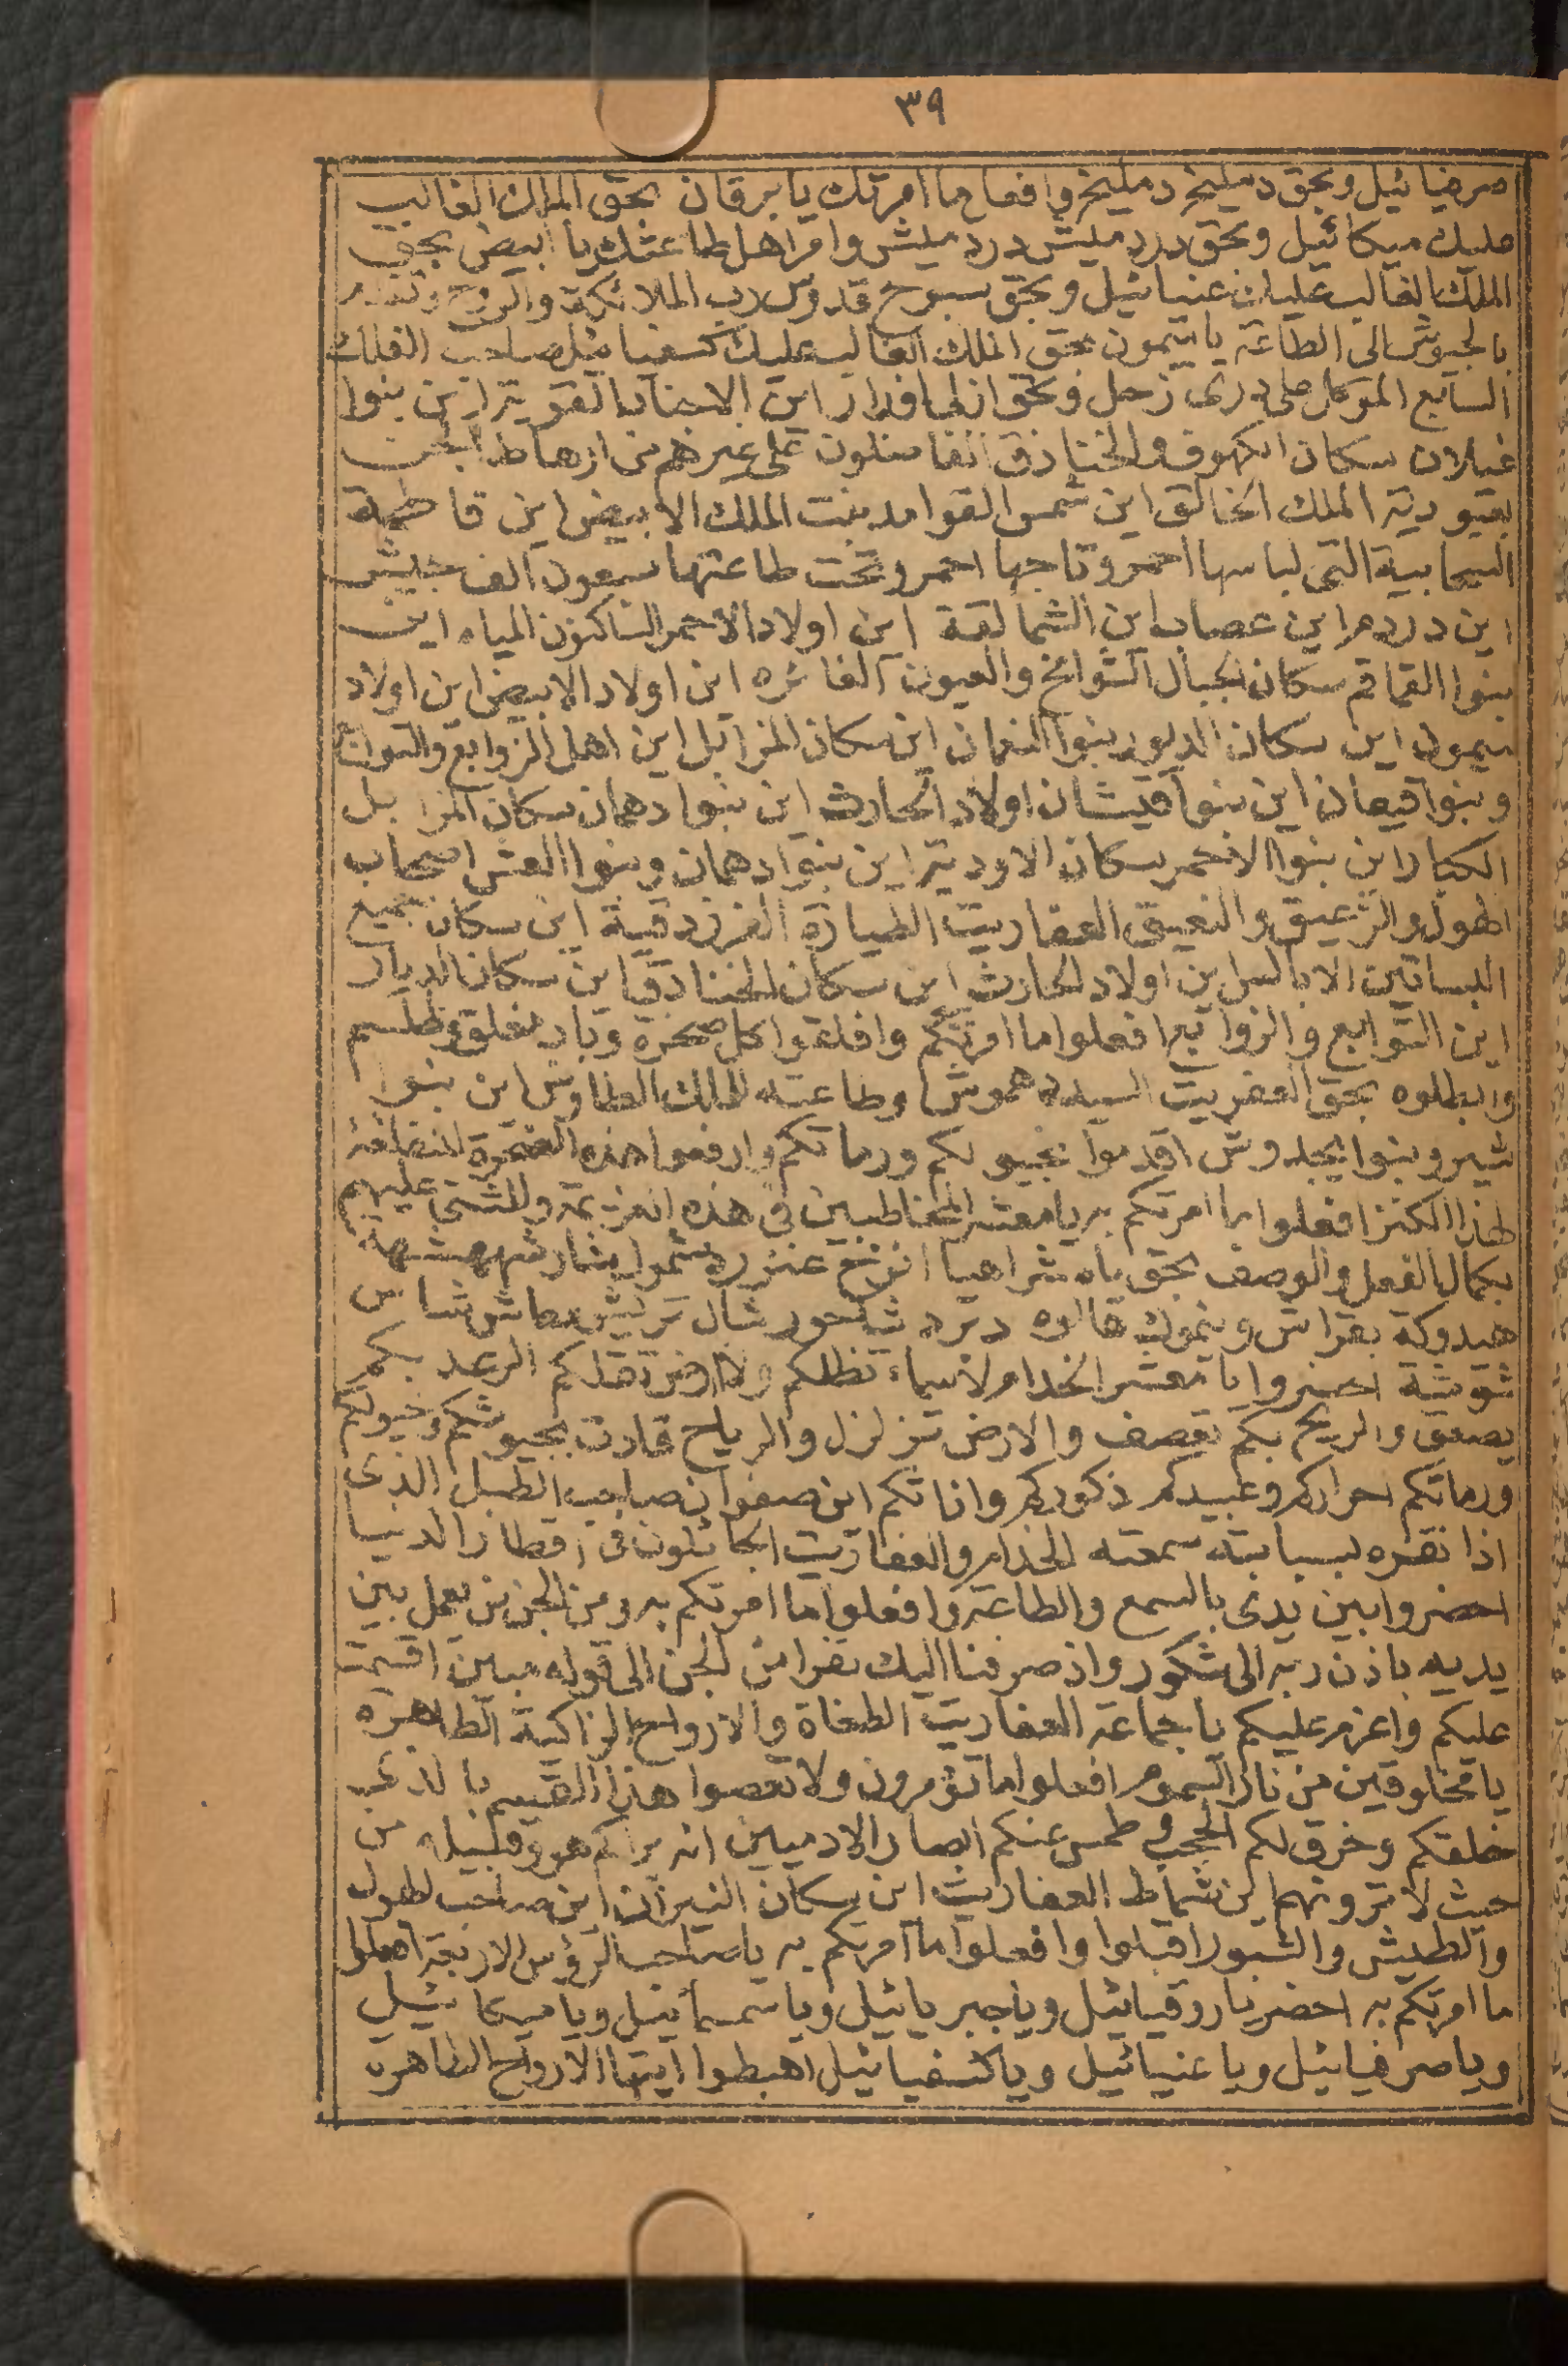 ٣٩
صرفيائيل وبحق دمليخ دمليخ وافعل ما امرتك يا برقان بحق الملك الغالب
عليك ميكائيل وبحق دردميش دردميش وامر اهل طاعتك يا ابيض بحق
الملك الغالب عليك عنيائيل وبحق سبوح قدوس رب الملائكة والروح وتقدم
بالجيوش الى الطاعة يا ميمون بحق الملك الغالب عليك كسفيائيل صاحب الفلك
السابع الموكل على زحل وبحق اين الاجناد القوية اين بنوا
غيلان سكان الكهوف والخنادق الفاضلون على غيرهم من ارهاط الجن
بقيودية الملك الخالق اين شمس القوامد بنت الملك الابيض اين فاطمة
السحابية التى لباسها احمر وتاجها احمر وتحت طاعتها سبعون الف جيش
اين دردم اين عصاب اين الشمالقة اين اولاد الاحمر الساكنون المياه اين
بنوا القماقم سكان الجبال الشوامخ والعيون الغائره اين اولاد الابيض اين اولاد
ميمون اين سكان الديور بنوا النعمان اين سكان المزابل اين اهل الزوابع والتوابع
وبنوا قيعان اين بنوا قيشان اولاد الحارث اين بنوا دهمان سكان المزابل
الكبار اين بنوا الاحمر سكان الاودية اين بنوا دهمان وبنوا العش اصحاب
الهول والزعيق والنعيق العفاريت الطيارة الفرزدقية اين سكان جميع
البساتين الابالس اين اولاد الحارث اين سكان الخنادق اين سكان الديار
اين التوابع والزوابع افعلوا ما امرتكم وافلقوا كل صخرة وباب مغلق وطلسم
وابطلوه بحق العفريت السيد دهموش وطاعته للملك الطاوش اين بنوا
شير وبنوا يجدوش اقدموا بخيولكم ورماتكم وارفعوا هذه الصخرة المنطبقة
لهذا الكنز افعلوا ما امرتكم به يا معشر المخاطبين فى هذه العزيمة والمنتخا عليهم
بكمال الفعل والوصف بحق ياه شراهيا
هيدوكه بقراش
شقوشة احضروا يا معشر الخدام لا سماء تظلكم ولا ارض تقلكم الرعد بكم
يصعق والريح بكم تعصف والارض تزلزل والرياح قادت بجيوشكم وخيولكم
ورماتكم احراركم وعبيدكم ذكوركم واناثكم اين صفوان صاحب الطبل الذى
اذا نقره بسبابته سمعته الخدام والعفاريت الجائلون فى اقطار الدنيا
احضروا بين يدى بالسمع والطاعة وافعلوا ما امرتكم به ومن الجن من يعمل بين
يديه باذن ربه الى شكور واذ صرفنا اليك نفرا من الجن الى قوله مبين اقسمت
عليكم واعزم عليكم يا جماعة العفاريت الطغاة والارواح الزاكية الطاهرة
يا مخلوقين من نار السموم افعلوا ما تؤمرون ولا تعصوا هذا القسم بالذى
خلقكم وخرق لكم الحجب وطمس عنكم ابصار الادميين انه يراكم هو وقبيله من
حيث لا ترونهم اين شماط العفاريت اين سكان النيران اين صاحب الهول
والطيش والشبور اقبلوا وافعلوا ما امرتكم به يا صاحب الرؤس الاربعة افعلوا
ما امرتكم به احضر يا روقيائيل ويا جبريائيل ويا سمسمائيل ويا ميكائيل
ويا صرفيائيل ويا عنيائيل ويا كسفيائيل اهبطوا ايتها الارواح الطاهره